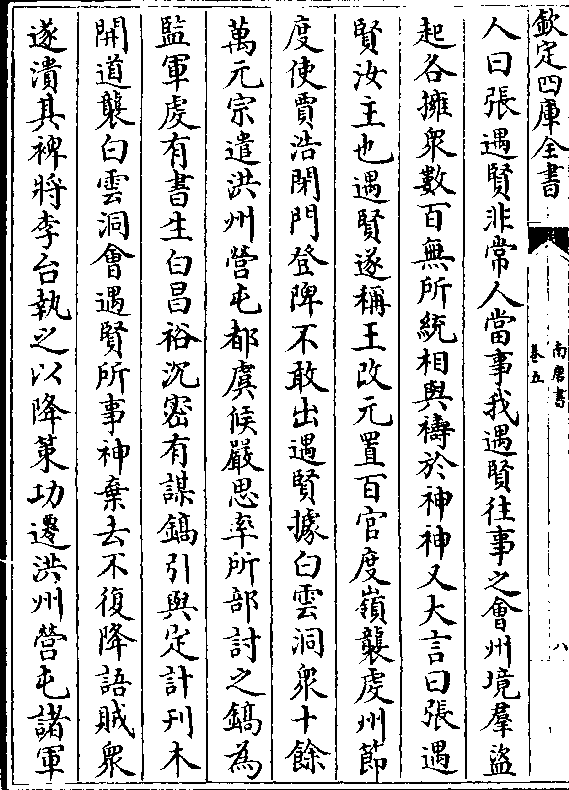 欽定四庫全書
南唐書
卷五
八
人曰張遇賢非常人當事我遇賢往事之會州境羣盜
起各擁衆數百無所統相與禱於神神又大言曰張遇
賢汝主也遇賢遂稱王改元置百官度嶺襲虔州節
度使賈浩閉門登陴不敢出遇賢據白雲洞衆十餘
萬元宗遣洪州營屯都虞候嚴思率所部討之鎬為
監軍虔有書生白昌裕沉密有謀鎬引與定計刋木
開道襲白雲洞會遇賢所事神棄去不復降語賊衆
遂潰其裨將李台執之以降策功遷洪州營屯諸軍